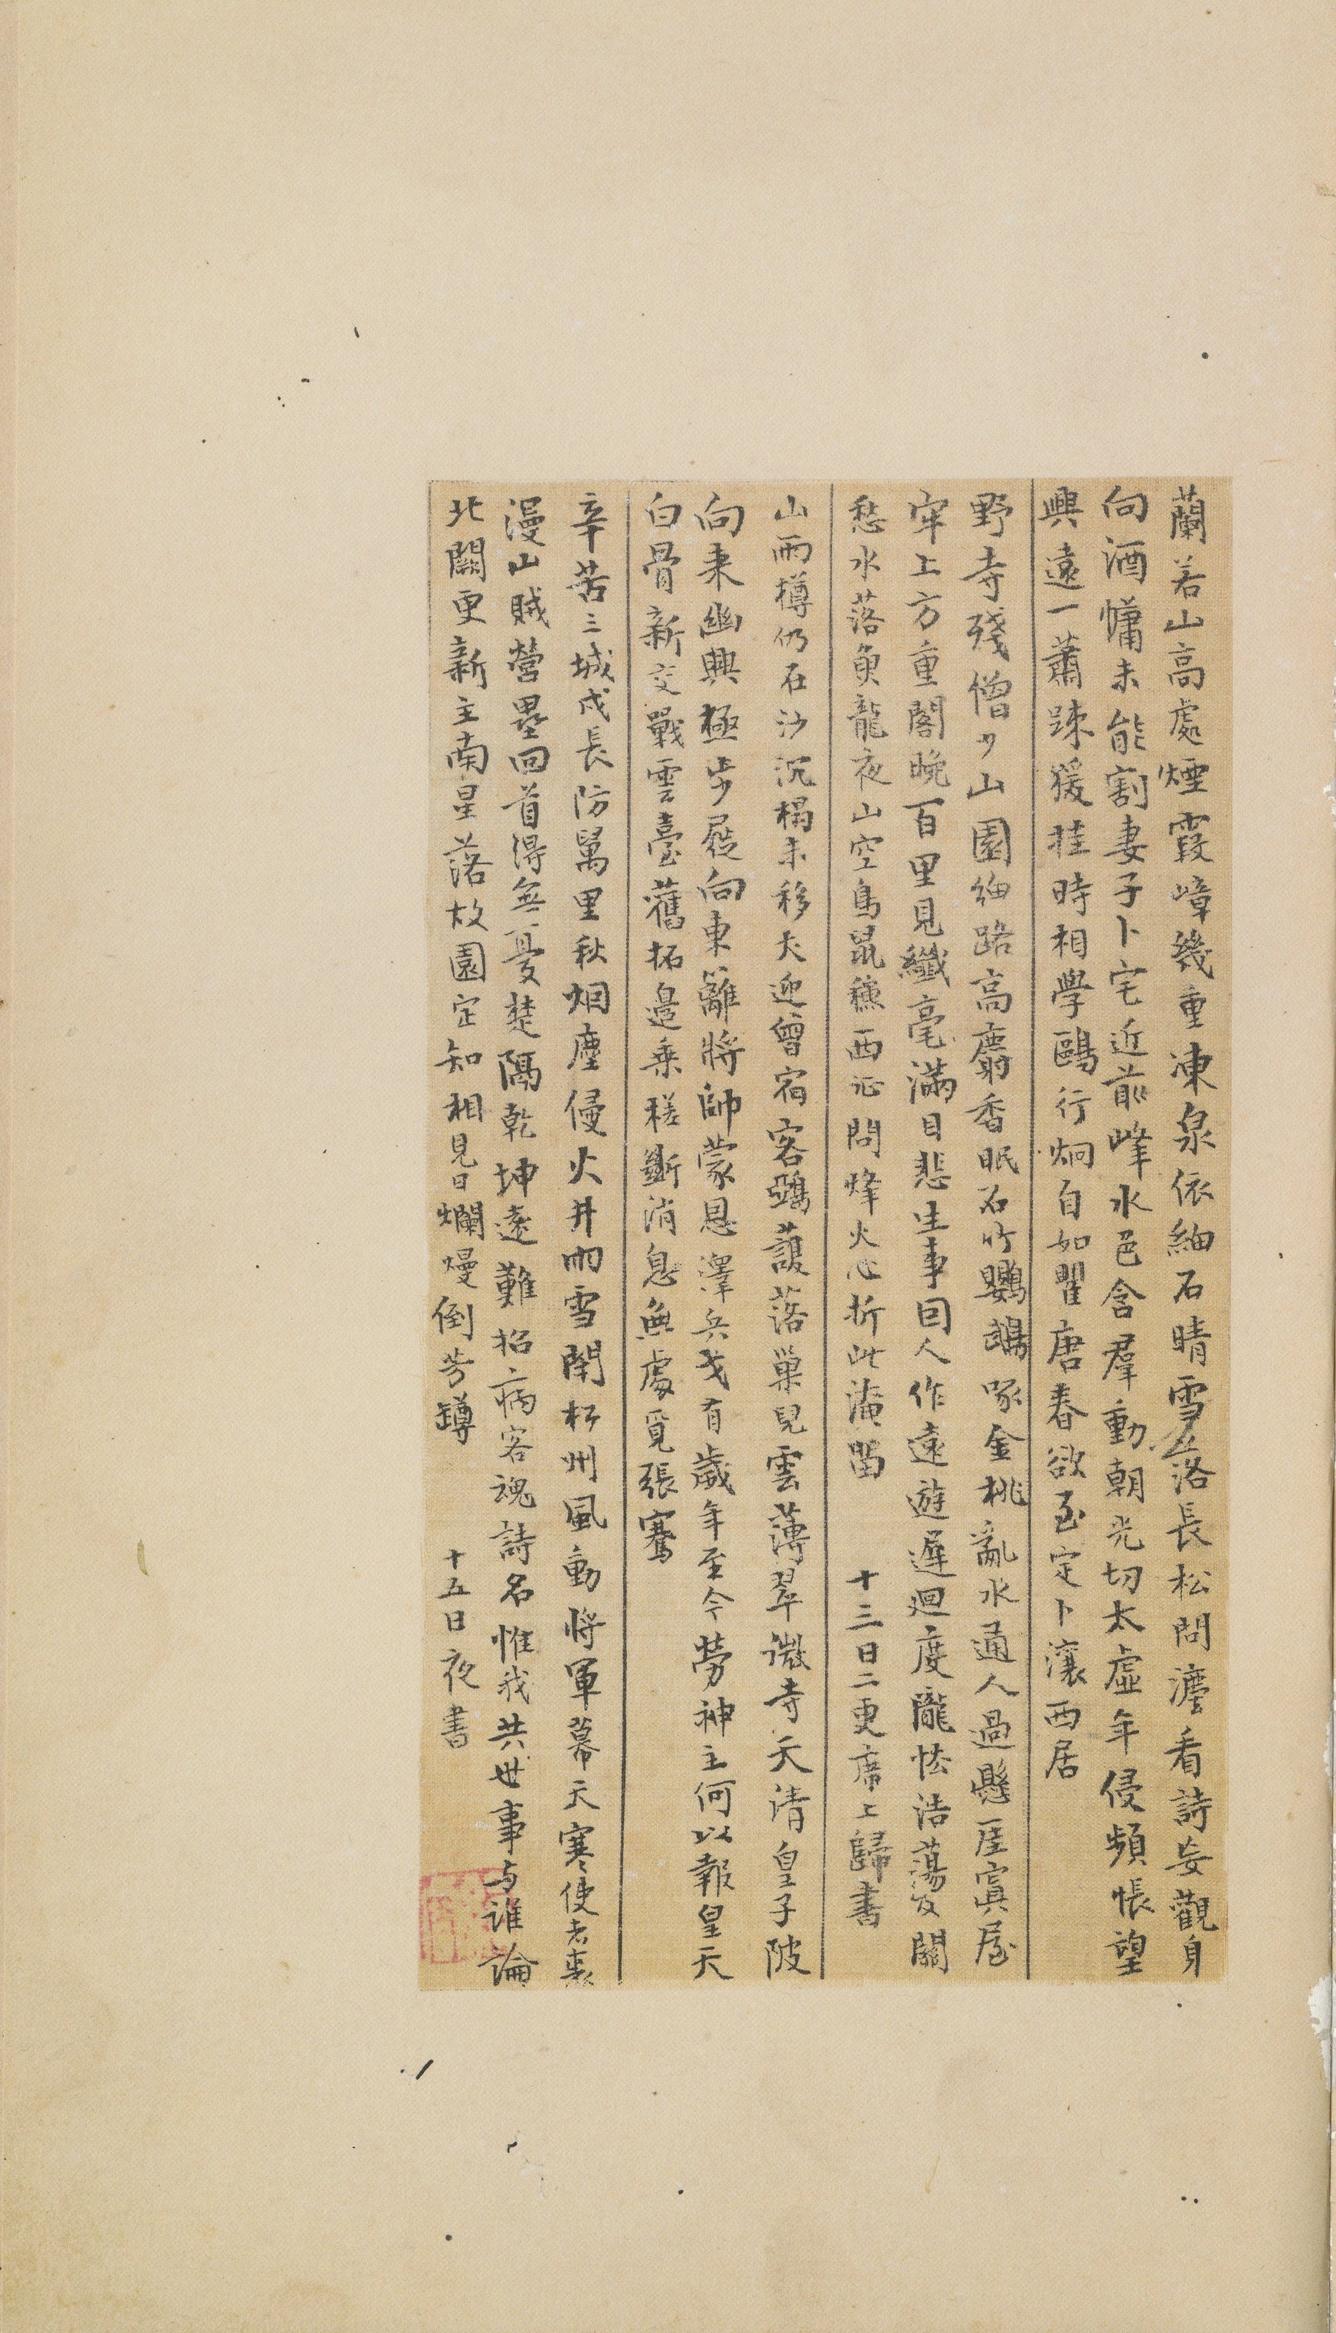 蘭若山高處煙霞嶂幾重凍泉依細石晴雪落長松問灋看詩妄觀身
向酒慵未能割妻子卜宅近前峰水色含羣動朝光切太虛年侵頻悵望
興遠一蕭踈猨挂時相學鷗行炯自如瞿唐春欲至定卜瀼西居
野寺殘僧少山園細路高麝香眠石竹鸚鵡啄金桃亂水通人過懸崖寘屋
牢上方重閣晚百里見纖毫滿目悲生事因人作遠遊遲迴度隴怯浩蕩及關
愁水落魚龍夜山空鳥鼠穐西征問烽火心折此淹留 十三日二更席上歸書
山雨樽仍在沙沉榻未移犬迎曾宿客鵶護落巢兒雲薄翠微寺天清皇子陂
向来幽興極步屧向東籬將帥蒙恩澤兵戈有歲年至今勞神主何以報皇天
白骨新交戰雲臺舊拓邉乘槎斷消息無處覓張騫
辛苦三城戍長防萬里秋烟塵侵火井雨雪閉松州風動將軍幕天寒使者裘
漫山賊營壘回首得無憂楚隅乾坤遠難招病客魂詩名惟我共世事与誰論
北闕更新主南星落故園定知相見日爛熳倒芳罇 十五日夜書